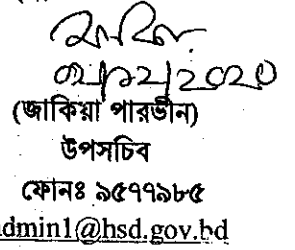 (জাকিয়া পারভীন)
উপসচিব
ফোনঃ ৯৫৭৭৯৮৫
admin1@hsd.gov.bd